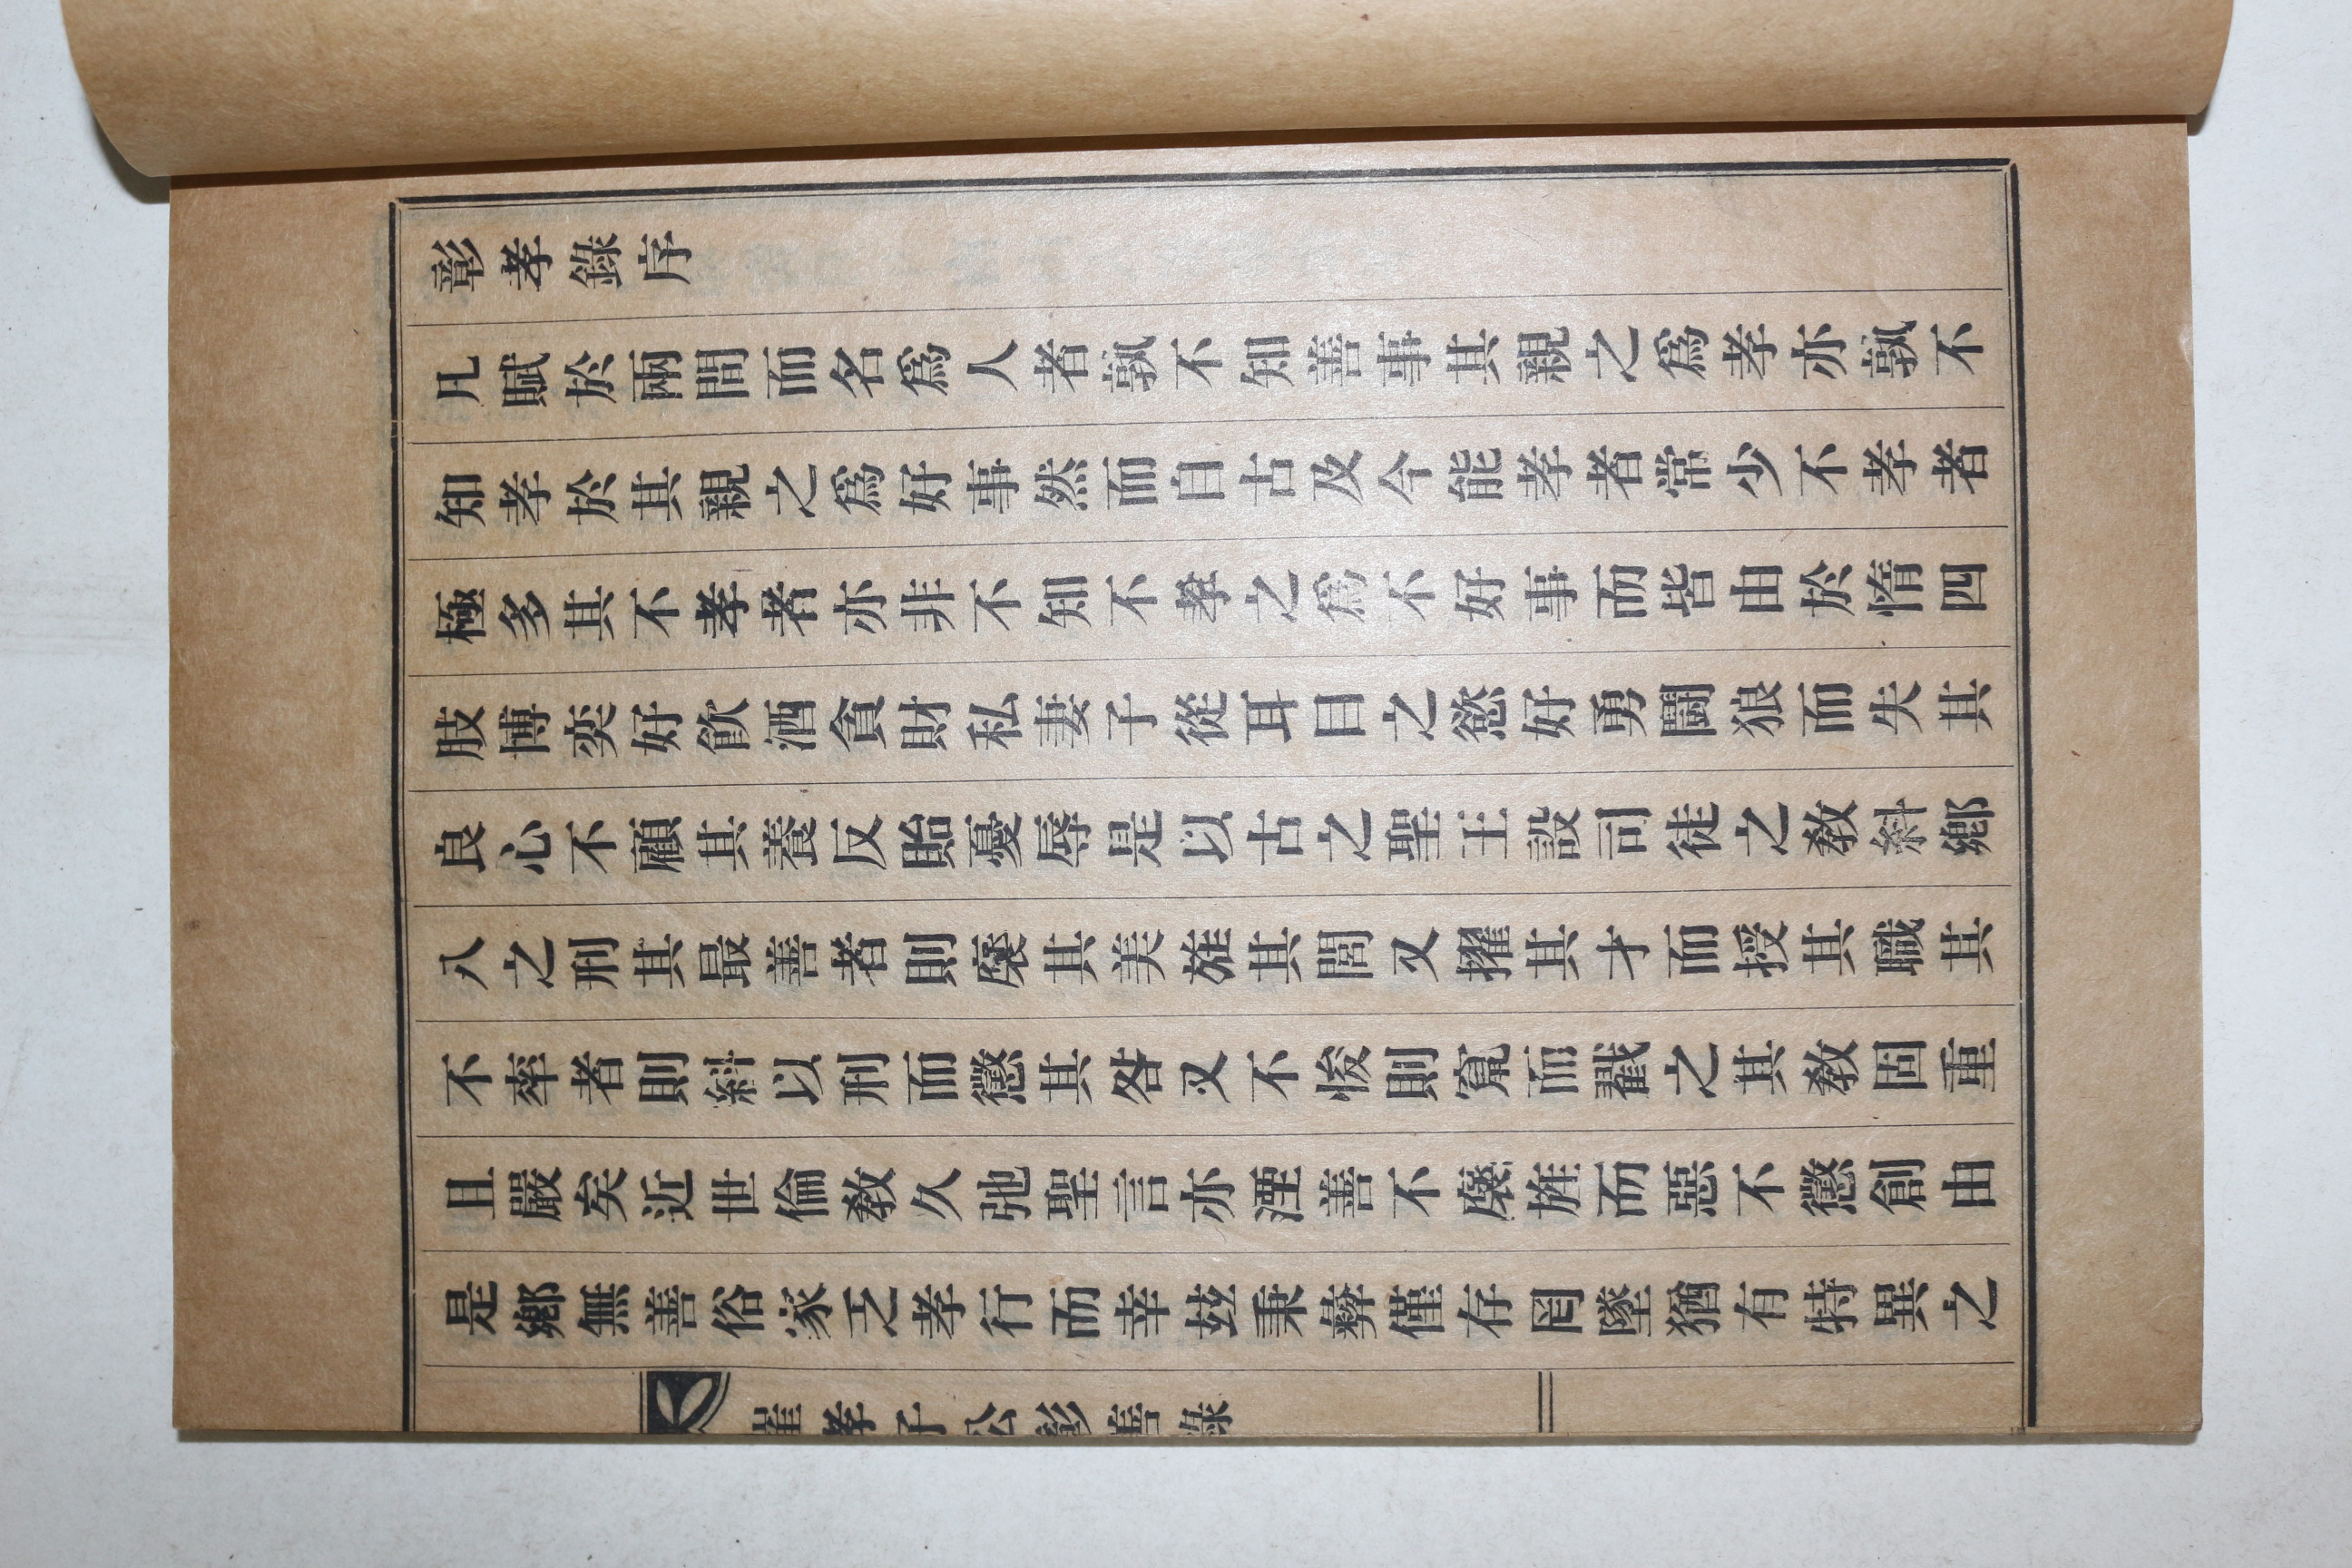 彰孝錄序
凡賦於兩間而名爲人者孰不知善事其親之爲孝亦孰不
知孝於其親之爲好事然而自古及今能孝者常少不孝者
極多其不孝者亦非不知不孝之爲不好事而皆由於惰四
肢博奕好飮酒貪財私妻子從耳目之慾好勇鬪狼而失其
良心不顧其養反貽憂辱是以古之聖王設司徒之敎糾鄕
八之刑其最善者則襃其美旌其閭又擢其才而授其職其
不率者則糾以刑而懲其咎又不悛則竄而戳之其敎固重
且嚴矣近世倫敎久弛聖言亦湮善不襃旌而惡不懲創由
是鄕無善俗家乏孝行而幸玆秉彜僅存罔墜猶有特異之
崔孝子公彰善錄